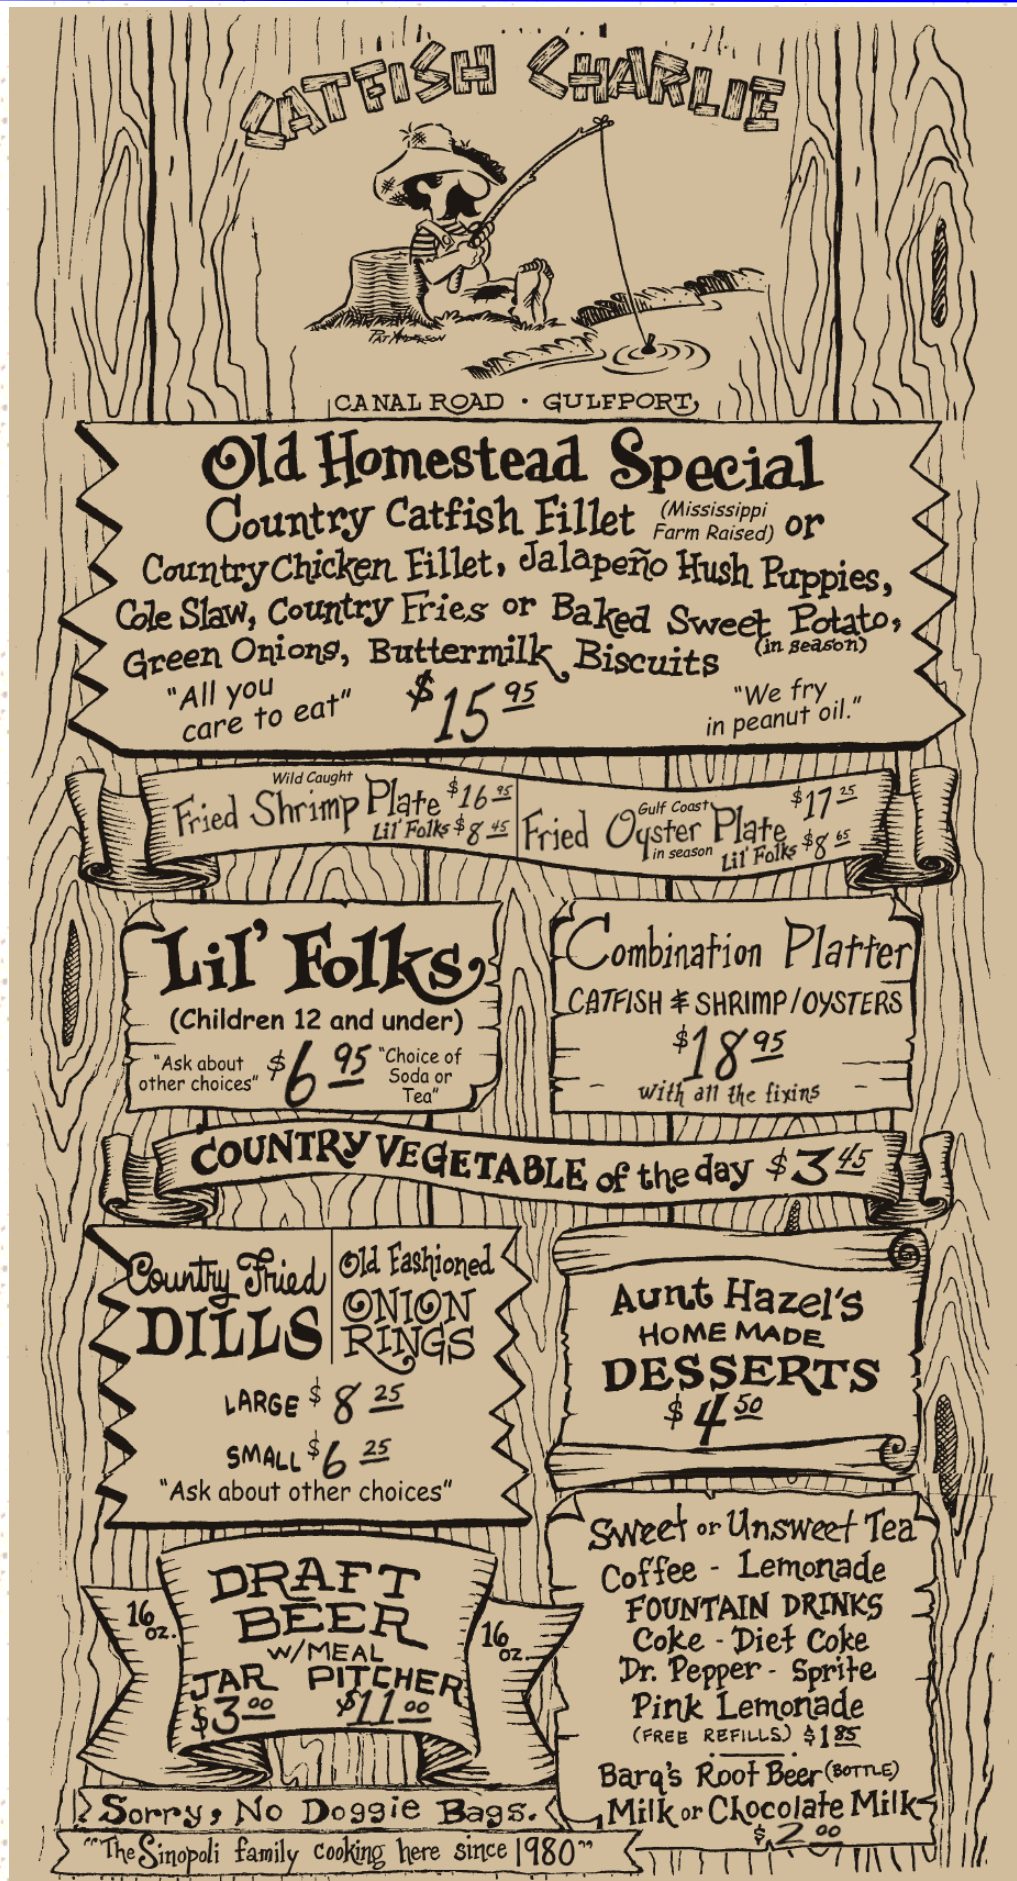 CATFISH CHARLIE
PAT ANDERSON
CANAL ROAD · GULFPORT,
Old Homestead Special
Country Catfish Fillet (Mississippi Farm Raised) or
Country Chicken Fillet, Jalapeño Hush Puppies,
Cole Slaw, Country Fries or Baked Sweet Potato,
(in season)
Green Onions, Buttermilk Biscuits
"All you
care to eat"
$15 95
"We fry
in peanut oil."
Wild Caught
Fried Shrimp Plate $16 95
Lil' Folks $8 45
Gulf Coast
Fried Oyster Plate $17 25
in season
Lil' Folks $8 65
Lil' Folks
(Children 12 and under)
"Ask about
other choices"
$6 95
"Choice of
Soda or
Tea"
Combination Platter
CATFISH & SHRIMP/OYSTERS
$18 95
with all the fixins
COUNTRY VEGETABLE of the day $3 45
Country Fried
DILLS
Old Fashioned
ONION
RINGS
LARGE $8 25
SMALL $6 25
"Ask about other choices"
Aunt Hazel's
HOME MADE
DESSERTS
$4 50
16 oz.
DRAFT
BEER
W/MEAL
JAR PITCHER
$3 00 $11 00
16 oz.
Sweet or Unsweet Tea
Coffee - Lemonade
FOUNTAIN DRINKS
Coke - Diet Coke
Dr. Pepper - Sprite
Pink Lemonade
(FREE REFILLS) $1 85
Barq's Root Beer (BOTTLE)
Milk or Chocolate Milk
$2 00
Sorry, No Doggie Bags.
"The Sinopoli family cooking here since 1980"